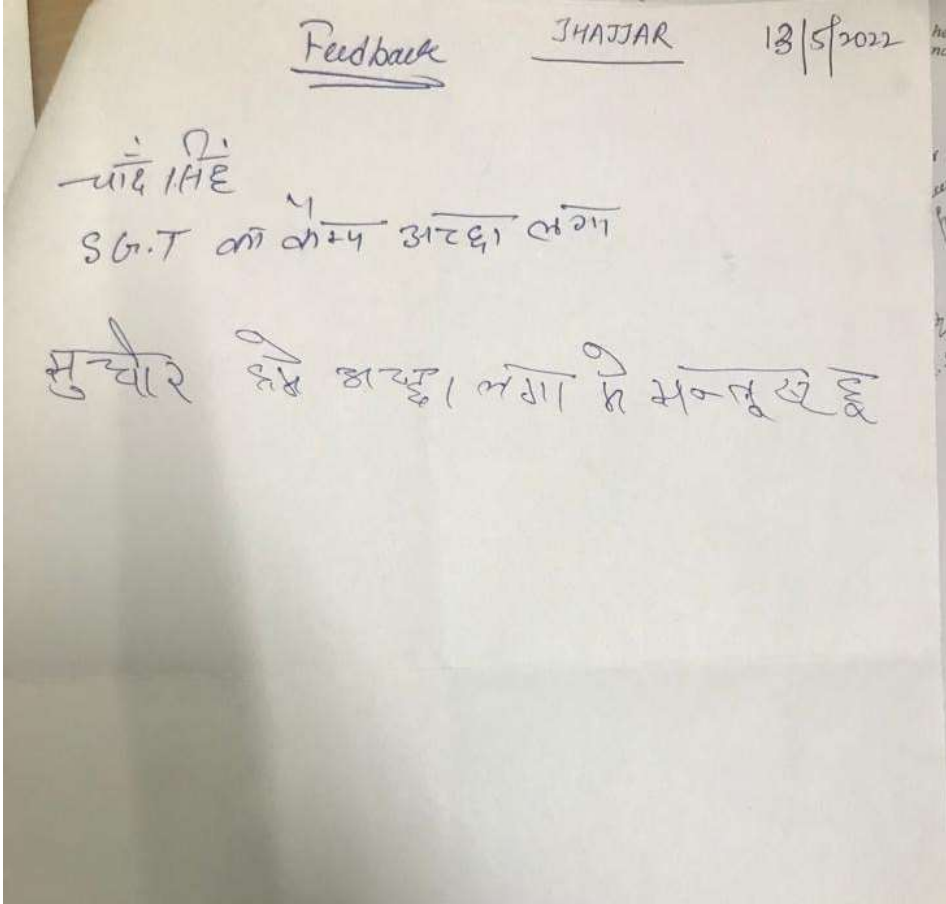 Feedback JHAJJAR 13/5/2022
चांद सिंह
S G.T का कैम्प अच्छा लगा
अच्छा लगा मे हूं